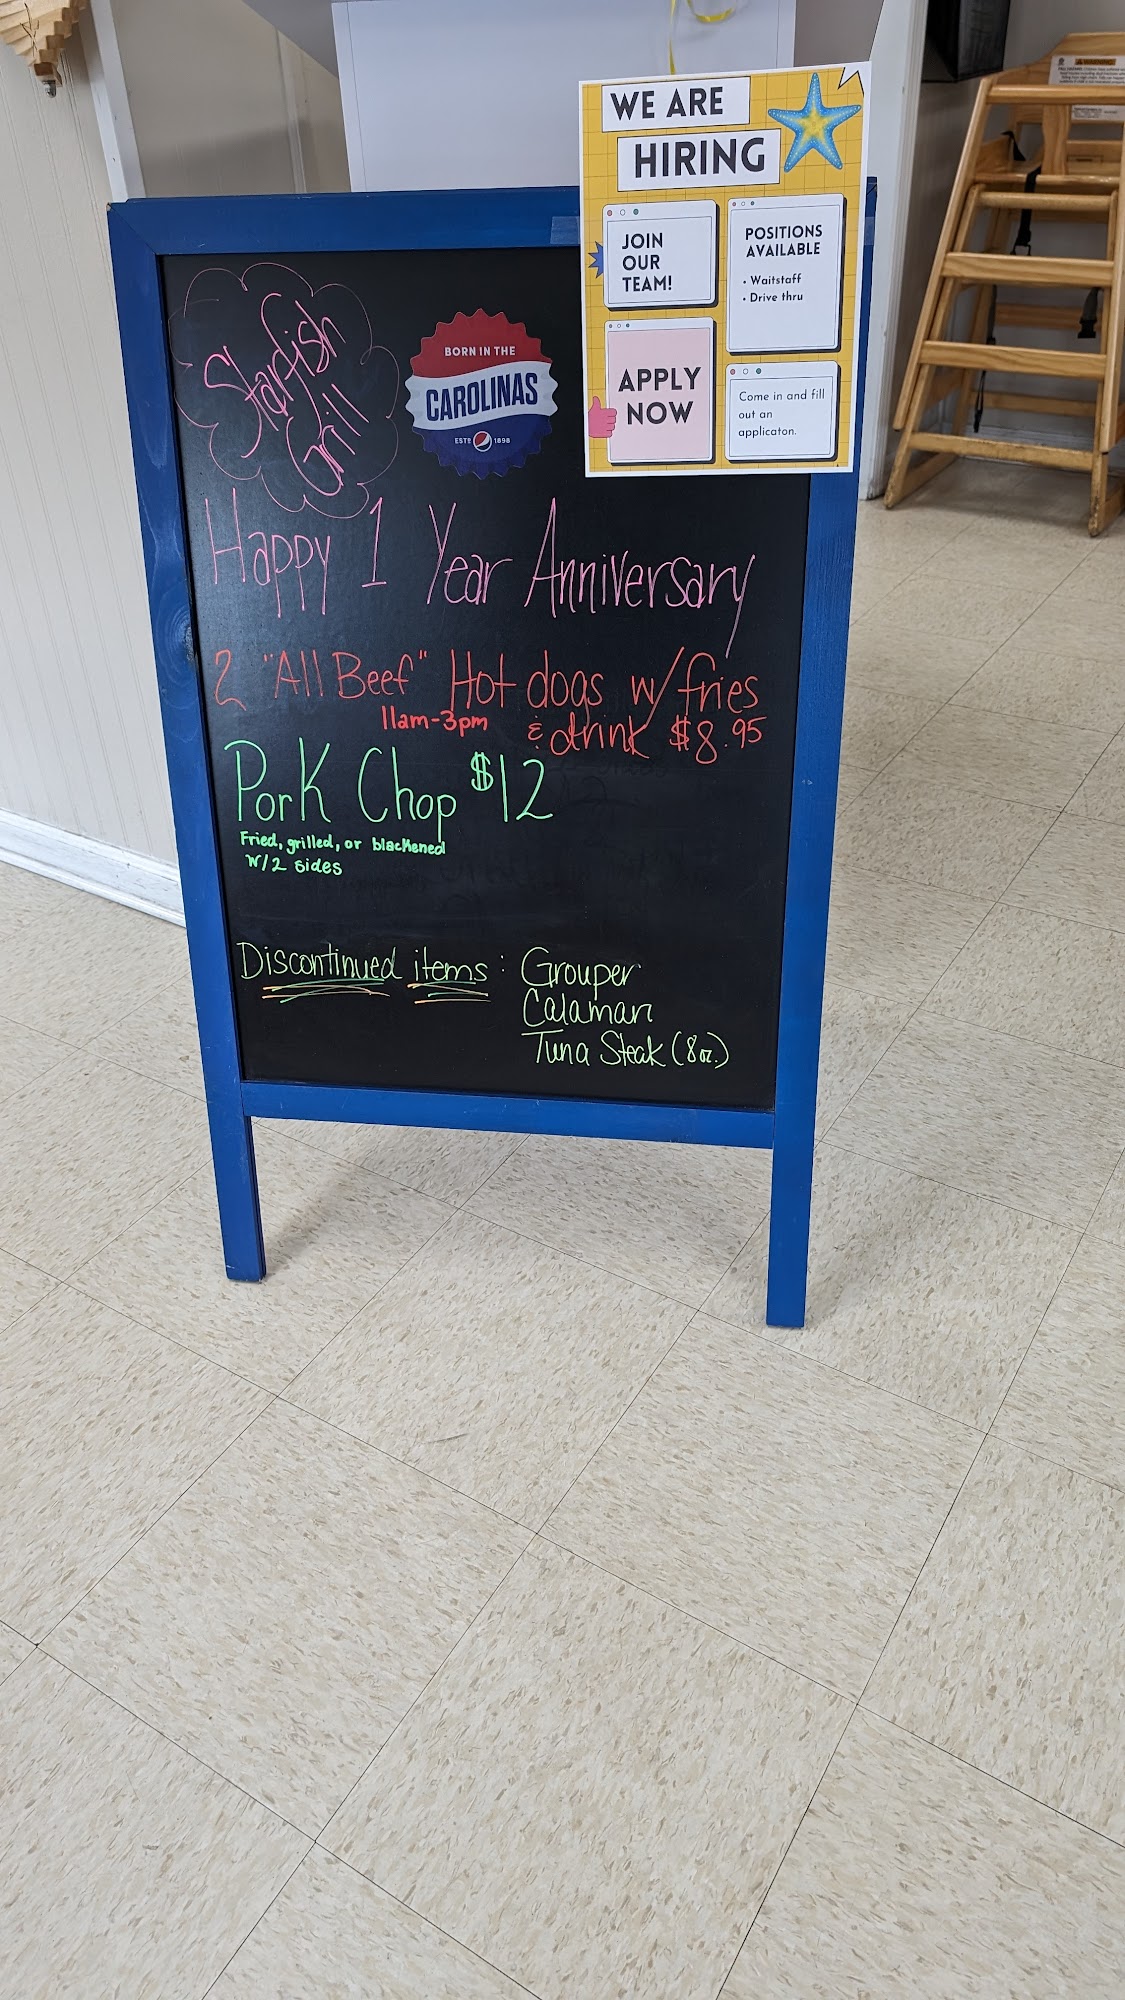 WE ARE
HIRING
JOIN
OUR
TEAM!
POSITIONS
AVAILABLE
• Waitstaff
• Drive thru
APPLY
NOW
Come in and fill
out an
applicaton.
Starfish
Grill
BORN IN THE
CAROLINAS
ESTD 1898
Happy 1 Year Anniversary
2 "All Beef" Hot dogs w/fries
11am-3pm & drink $8.95
Pork Chop $12
Fried, grilled, or blackened
w/2 sides
Discontinued items: Grouper
Calamari
Tuna Steak (8oz.)
WARNING